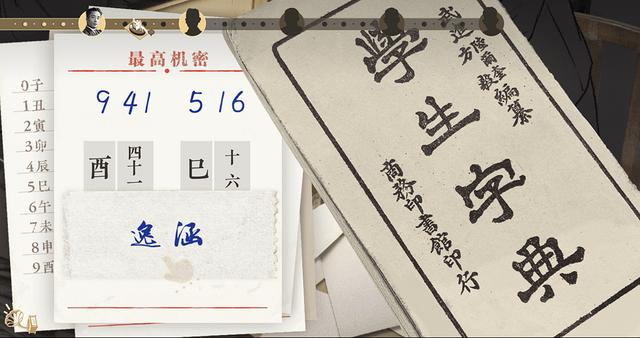 0子
1丑
2寅
3卯
4辰
5巳
6午
7未
8申
9酉
最高机密
941 516
酉 四十一 巳 十六
逸涵
武進
陸爾奎
方毅
編纂
學生字典
商務印書館印行